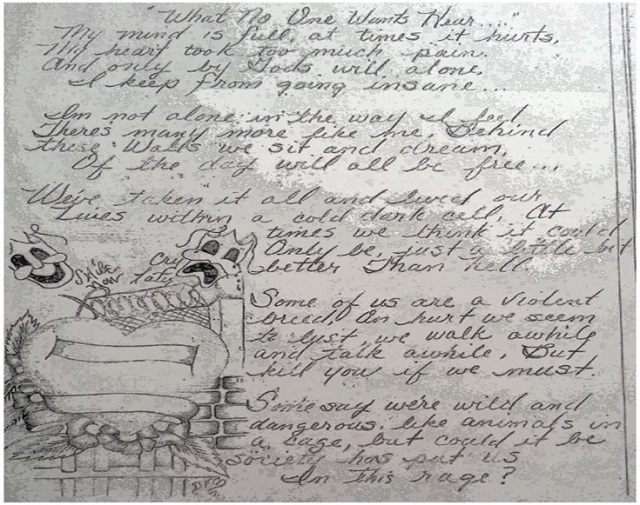 "What No One Wants Hear...."
My mind is full, at times it hurts,
My heart took too much pain.
And only by Gods will alone,
I keep from going insane...
Im not alone in the way I feel
Theres many more like me. Behind
these Walls we sit and dream,
Of the day will all be free...
We've taken it all and lived our
Lives within a cold dark cell, At
times we think it could
Only be just a little bit
better Than hell.
Smile
Now
Cry
later
Some of us are a violent
breed, On hurt we seem
to lust, we walk awhile
and talk awhile, But
kill you if we must.
Some say we're wild and
dangerous, like animals in
a cage, but could it be
society has put us
In this rage?